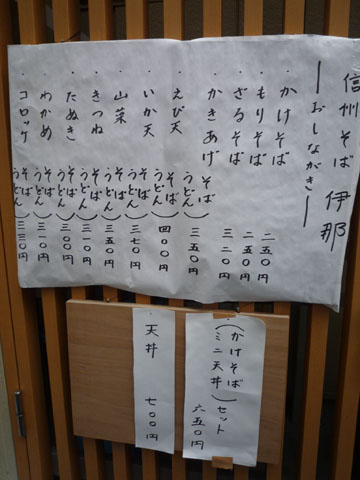 信州そば 伊那
―おしながき―
・かけそば 二五〇円
・もりそば 二五〇円
・ざるそば 三二〇円
・かきあげ(そば うどん) 三五〇円
・えび天(そば うどん) 四〇〇円
・いか天(そば うどん) 三七〇円
・山菜(そば うどん) 三五〇円
・きつね(そば うどん) 三一〇円
・たぬき(そば うどん) 三〇〇円
・わかめ(そば うどん) 三一〇円
・コロッケ(そば うどん) 三三〇円
(かけそば
ミニ天丼)セット 六五〇円
天丼 七〇〇円